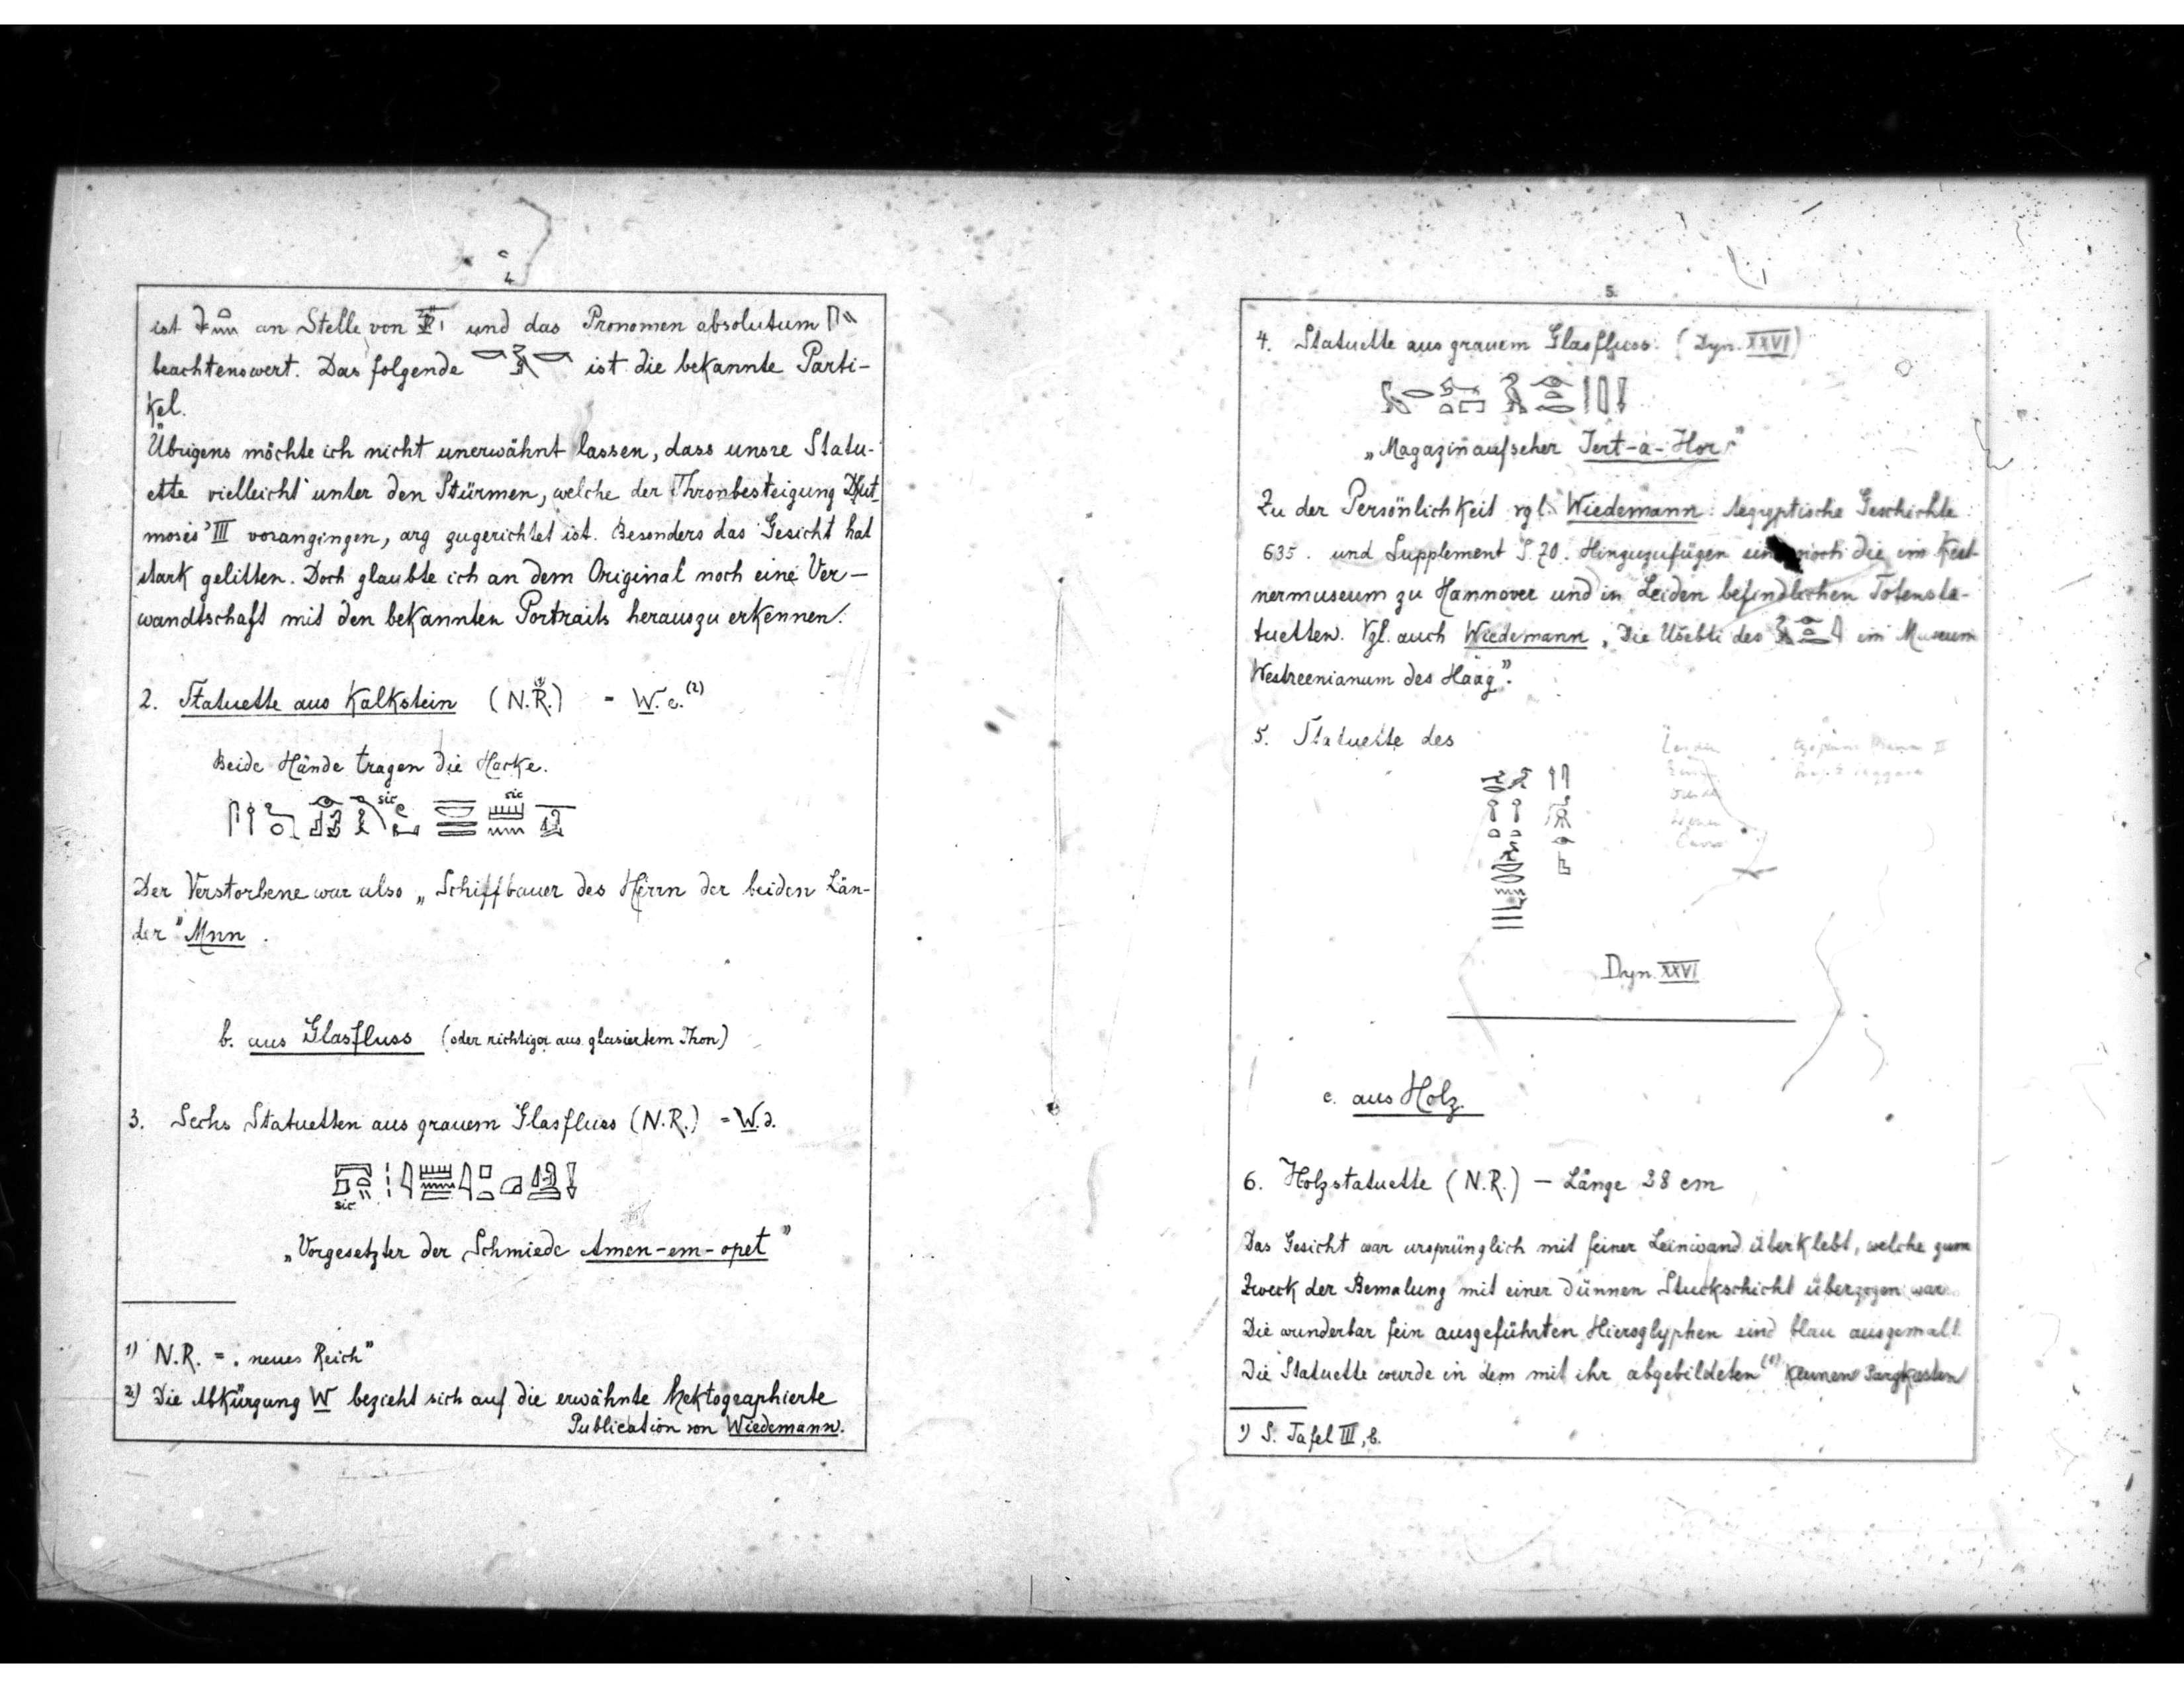 4
ist an Stelle von und das Pronomen absolutum
beachtenswert. Das folgende ist die bekannte Parti-
kel.
Übrigens möchte ich nicht unerwähnt lassen, dass unsre Statu-
ette vielleicht unter den Stürmen, welche der Thronbesteigung Dhut-
moses' III vorangingen, arg zugerichtet ist. Besonders das Gesicht hat
stark gelitten. Doch glaubte ich an dem Original noch eine Ver-
wandtschaft mit den bekannten Portraits herauszuerkennen.
2. Statuette aus Kalkstein (N.R.) = W. c. (2)
Beide Hände tragen die Hacke.
sic sic
Der Verstorbene war also „Schiffbauer des Herrn der beiden Län-
der" Mnn.
b. aus Glasfluss (oder richtiger aus glasiertem Thon)
3. Sechs Statuetten aus grauem Glasfluss (N.R.) = W. d.
sic
„Vorgesetzter der Schmiede Amen-em-opet"
1) N.R. = „neues Reich"
2) Die Abkürzung W bezieht sich auf die erwähnte hektographierte
Publication von Wiedemann.
5.
4. Statuette aus grauem Glasfluss. (Dyn. XXVI)
„Magazinaufseher Tert-a-Hor"
Zu der Persönlichkeit vgl. Wiedemann Aegyptische Geschichte
635. und Supplement S. 70. Hinzuzufügen noch die im Kest-
nermuseum zu Hannover und in Leiden befindlichen Totensta-
tuetten. Vgl. auch Wiedemann, Die Ušebti des im Museum
Westreenianum des Haag".
5. Statuette des
Dyn. XXVI
c. aus Holz.
6. Holzstatuette (N.R.) — Länge 28 cm
Das Gesicht war ursprünglich mit feiner Leinwand überklebt, welche zum
Zweck der Bemalung mit einer dünnen Stuckschicht überzogen war.
Die wunderbar fein ausgeführten Hieroglyphen sind blau ausgemalt.
Die Statuette wurde in dem mit ihr abgebildeten (1) kleinen Sargkasten
1) S. Tafel III, b.